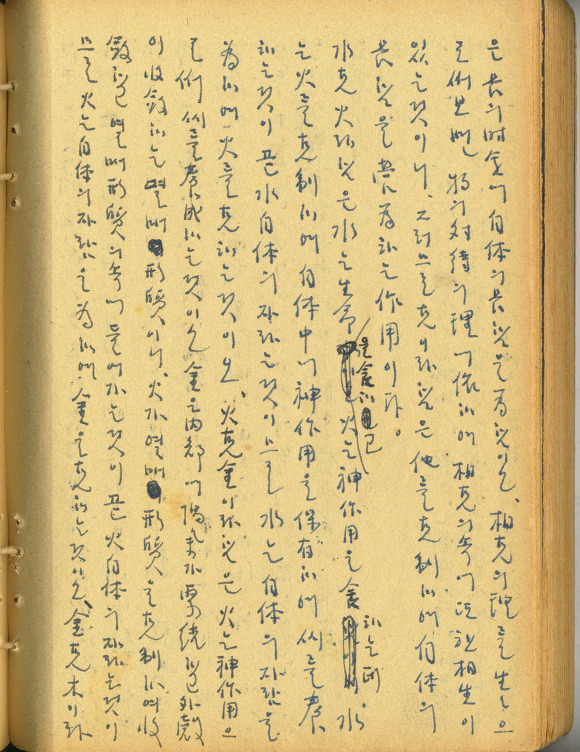 은 長의 时 속에 自体의 長함을 爲함이오, 相克의 理를 生으
로써 보면 物의 对待의 理에 依하여 相克의 속에 또한 相生이
있는 것이니, 그러므로 克이라 함은 他를 克制하여 自体의
長함을 営為하는 作用이다。
水克火라 함은 水는 生命을 含하고 火는 神作用을 含하는데 水
는 火를 克制하여 自体中에 神作用을 保有하여 씨를 養
하는 것이 곧 水自体의 자라는 것이므로 水는 自体의 자람을
為하여 火를 克하는 것이오, 火克金이라 함은 火는 神作用으
로써 씨를 養成하는 것이오 金은 内部에 陽氣가 外殼
이 收斂하는 열매 形質이니, 火가 열매 形質을 克制하여 收
斂되고 열매 形質의 속에 들어가는 것이 곧 火自体의 자라는 것이
므로 火는 自体의 자람을 為하여 金을 克하는 것이오, 金克木이라